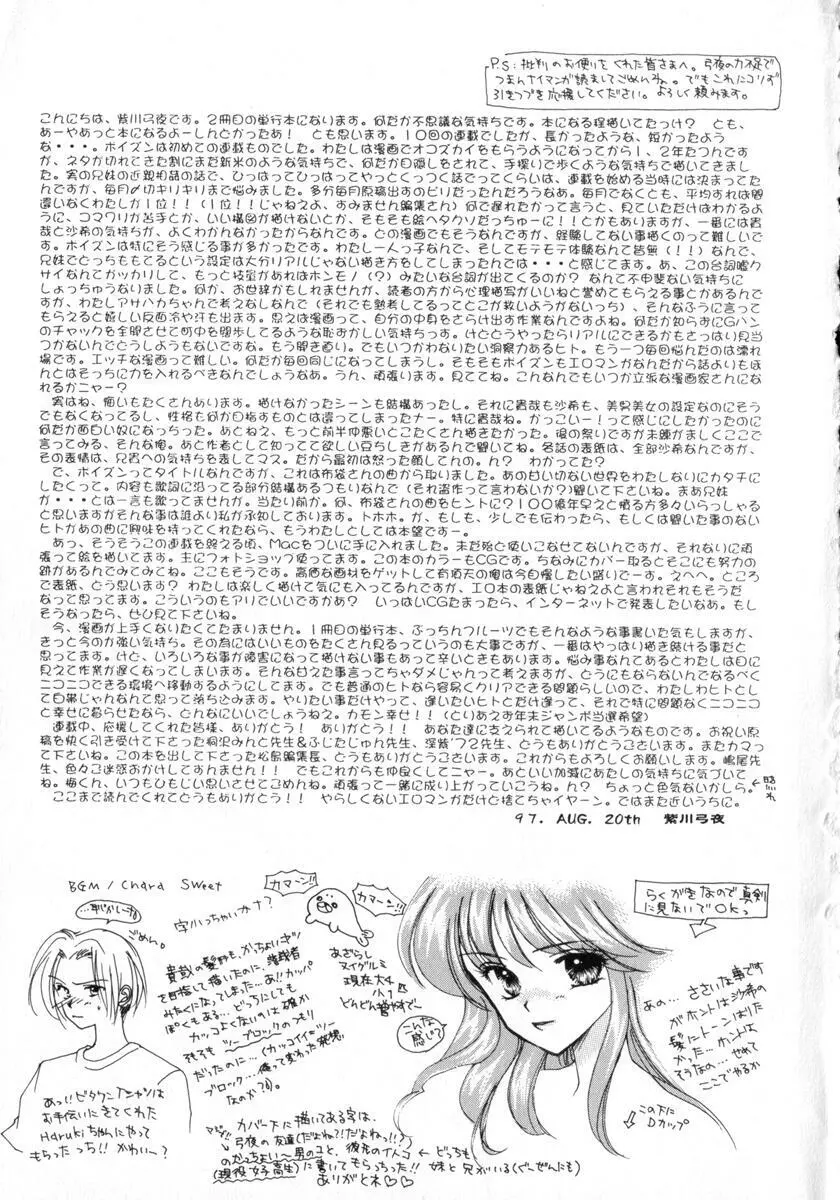 P.S:批判のお便りをくれた皆さまへ。弓夜の力不足で
つまんナイマンガ読ましてごめんね。でもこれにコリず
引きつづき応援してください。よろしく頼みます。
こんにちは、紫川弓夜です。2冊目の単行本になります。何だか不思議な気持ちです。本になる程描いてたっけ? とも、
あーやあっと本になるよーしんどかったあ! とも思います。10回の連載でしたが、長かったような、短かったよう
な・・・。ポイズンは初めての連載ものでした。わたしは漫画でオコズカイをもらうようになってから1、2年たつんです
が、ネタが切れてきた割にまだ新米のような気持ちで、何だか目隠しをされて、手探りで歩くような気持ちで描いてきまし
た。実の兄妹の近親相姦の話で、ひっぱってひっぱってやっとくっつく話でってくらいは、連載を始める当時には決まってた
んですが、毎月〆切ギリギリまで悩みました。多分毎月原稿出すのビリだったんだろうなあ。毎月でなくとも、平均すれば間
違いなくわたしが1位!!(1位!!じゃねえよ、すみません編集さん)何で遅れたかって言うと、見ていただけばわかるよ
うに、コマワリが苦手とか、いい構図が描けないとか、そもそも絵ヘタクソだっちゅーに!!とかもありますが、一番には貴
哉と沙希の気持ちが、よくわかんなかったからなんです。どの漫画でもそうなんですが、経験してない事描くのって難しいで
す。ポイズンは特にそう感じる事が多かったです。わたし一人っ子なんで、そしてモテモテ体験なんて皆無(!!)なんで、
兄妹でどっちももてるという設定は大分リアルじゃない描き方をしてしまったんでは・・・と感じてます。あ、この台詞嘘ク
サイなんてガッカリして、もっと技量があればホンモノ(?)みたいな台詞が出てくるのか? なんて不甲斐ない気持ちに
しょっちゅうなりました。何か、お世辞かもしれませんが、読者の方から心理描写がいいねと誉めてもらえる事とかあるんで
すが、わたしアサハカちゃんで考えなしなんで(それでも熟考してるってとこが救いようがないっち)、そんなふうに言って
もらえると嬉しい反面冷や汗も出ます。思えば漫画って、自分の中身をさらけ出す作業なんですよね。何だか知らずにGパン
のチャックを全開させて町中を闊歩してるような恥ずかしい気持ちっす。けどどうやったらリアルにできるかもさっぱり見当
つかないんでどうしようもないですな。もう開き直り。でもいつかそなわりたい洞察力あるヒト。もう一つ毎回悩んだのは濡れ
場です。エッチな漫画って難しい。何だか毎回同じになってしまうし。そもそもポイズンもエロマンガなんだから話よりもほ
んとはそっちに力を入れるべきなんでしょうなあ。うん、頑張ります。見ててね。こんなんでもいつか立派な漫画家さんにな
れるかニャー?
実はね、悔いもたくさんあります。描けなかったシーンも結構あったし。それに貴哉も沙希も、美男美女の設定なのにそう
でもなくなってるし、性格も何か目指すものとは違ってしまったナー。特に貴哉ね。かっこいー!って感じにしたかったのに
何だか面白い奴になっちった。あとねえ、もっと前半仲悪いとこたくさん描きたかった。後の祭りですが未練がましくここで
言ってみる、そんな俺。あと作者として知ってて欲しい豆ちしきがあるんで聞いてね。各話の表紙は、全部沙希なんですが、
その表情は、兄貴への気持ちを表してマス。だから最初は怒った顔してんの。ん? わかってた?
で、ポイズンってタイトルなんですが、これは布袋さんの曲から取りました。あの甘い切ない世界をわたしなりにカタチに
したくって。内容も歌詞に沿ってる部分結構あるつもりなんで(それ盗作って言わないか?)聞いて下さいね。まあ兄妹
が・・・とは一言も歌ってませんが。当たり前か。何、布袋さんの曲をヒントに?100億年早えと憤る方多々いらっしゃる
と思いますがそんな事は誰より私が承知しております。トホホ。が、もしも、少しでも伝わったら、もしくは聞いた事のない
ヒトがあの曲に興味を持ってくれたなら、もうわたしとしては本望です―。
あっ、そうそうこの連載を終える頃、Macをついに手に入れました。未だ殆ど使いこなせてないんですが、それなりに頑
張って絵を描いてます。主にフォトショップ使ってます。この本のカラーもCGです。ちなみにカバー取るとそこにも努力の
跡があるんでみてみてね。ここもそうです。高価な画材をゲットして有頂天の俺は今自慢したい盛りでーす。えへへ。ところ
で表紙、どう思います? わたしは楽しく描けて気にも入ってるんですが、エロ本の表紙じゃねえよと言われそれもそうだ
なって思ってます。こういうのもアリでいいですかあ? いっぱいCGたまったら、インターネットで発表したいなあ。もし
そうなったら、ぜひ見て下さいね。
今、漫画が上手くなりたくてたまりません。1冊目の単行本、ぷっちんフルーツでもそんなような事書いた気もしますが、
きっと今のが強い気持ち。その為にはいいものをたくさん見るっていうのも大事ですが、一番はやっぱい描き続ける事だと
思ってます。けど、いろいろな事が障害になって描けない事もあって辛いときもあります。悩み事なんてあるとわたしは目に
見えて作業が遅くなってしまいます。そんな甘えた事言ってちゃダメじゃんって考えますが、どうにもならないんでなるべく
ニコニコできる環境へ移動するようにしてます。でも普通のヒトなら容易くクリアできる問題らしいので、わたしわヒトとし
て白帯じゃんなんて思って落ち込みます。やりたい事だけやって、逢いたいヒトとだけ逢って、それで特に問題なくニコニコ
と幸せに暮らせたなら、どんなにいいでしょうねえ。カモン幸せ!!(とりあえず年末ジャンボ当選希望)
連載中、応援してくれた皆様、ありがとう! ありがとう!! あなた達に支えられて描いてるようなものです。お祝い原
稿を快く引き受けて下さった桐沢みんと先生&ふじたじゅん先生、淫紫'72先生、どうもありがとうございます。またカマっ
て下さいね。この本を出して下さった松島編集長、どうもありがとうございます。これからもよろしくお願いします。嶋尾先
生、色々ご迷惑おかけしてすんません!! でもこれからも仲良くしてニャー。あといい加減にあたしの気持ちに気づいて
ね。悔くん、いつもひもじい思いさせてごめんね。頑張って一緒に成り上がっていこうね。ん? ちょっと色気ないかしら。
ここまで読んでくれてどうもありがとう!! やらしくないエロマンガだけど捨てちゃイヤーン。ではまた近いうちに。
97. AUG. 20th 紫川弓夜
BGM / Chara Sweet
カマーン!!
カマーン!!
らくがきなので真剣
に見ないでOKっ
字小っちゃいかナ?
ごめん。
貴哉の髪形も、かっちょいギツ
を目指して描いたのに、落武者
みたくになってしまった…あ!!カッパ
ぽくもある…どっちにしても
カッコよくないのは確か
そもそも ツーブロックのつもり
だったのに…(カッコイイ=ツー
ブロック…俺って変わった発想
なのか?)。
あざらし
ヌイグルミ
現在大4
小1匹
どんどん増やすでー
こんな
感じで
あの…ささいな事です
がホントは沙希の
髪にトーンはりた
かった…ホントは
そうなの…せめて
ここでやるか
この下に
Dカップ
あっ!!ピタTシャツは
お手伝いにきてくれた
Harukiちゃんにやって
もらったっち!! かわい~?
カバー下に描いてある字は、
弓夜の友達(だよね?!だよねっ!!?)
のかっちょい~男のコと、彼の兄のイトコ ← どっちも
(現役女子高生)に書いてもらっち!! 妹と兄がいる(ぐーぜんにも)
ありがとネ♡♡